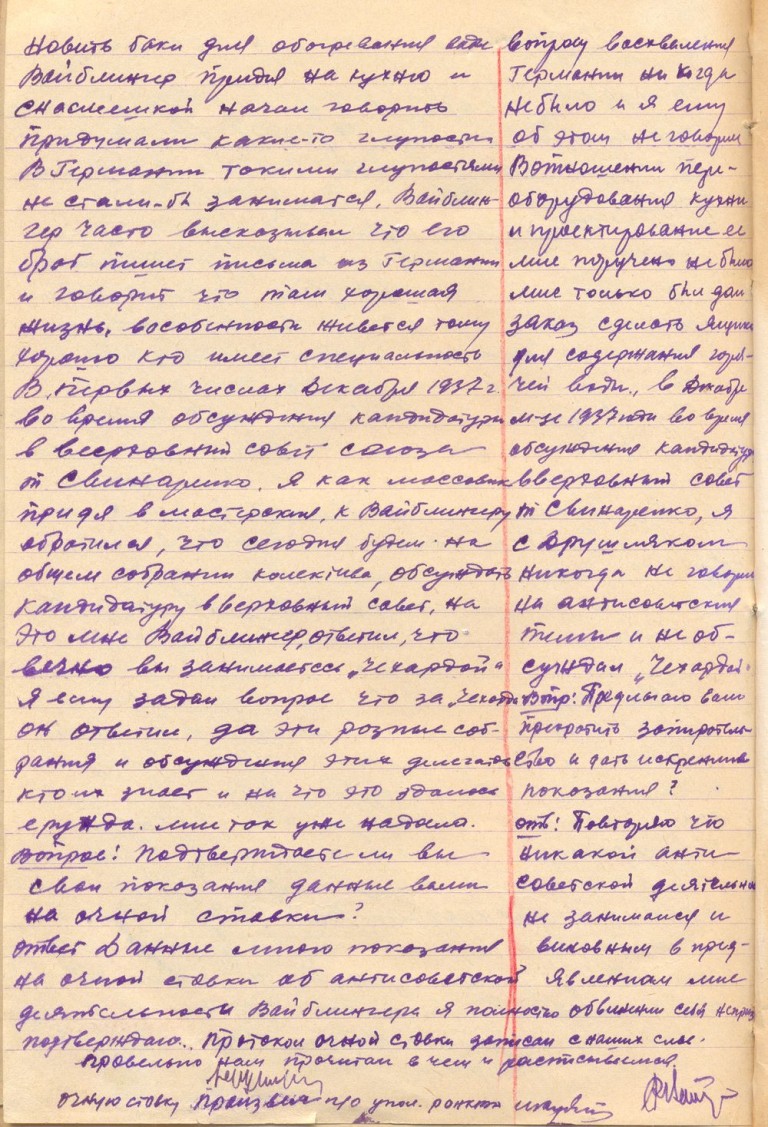 новить баки для обогревания воды
Вайблингер придя на кухню и
снасмешкой начал говорить
придумали какие-то глупости
В Германии такими глупостями
не стали-бы заниматся, Вайблин-
гер часто высказывал что его
брат пишет письма из Германии
и говорит что там хорошая
жизнь, вособенности живется тому
хорошо кто имеет специальность
В первых числах Декабря 1937 г.
во время обсуждения кандидатуры
в верховный совет союза
т Свинаренко. Я как массовик
придя в мастерская, к Вайблингеру
обратился, что сегодня будем на
общем собрании колектива, обсуждать
кандидатуру вверховный совет, на
это мне Вайблингер, ответил, что
вечно вы занимаетесь „Чехардой"
Я ему задал вопрос что за „чехарда
он ответил, да эти разные соб-
рания и обсуждения этих делегатов
кто их знает и на что это здалось
ерунда. мне так уже надоела.
Вопрос! Подтверждаете ли вы
свои показания данные вами
на очной ставки?
ответ Данные мною показания
на очной ставки об антисоветской
деятельности Вайблингера я полностю
подтверждаю.
вопросу восхваления
Германии никогда
небыло и я ему
об этом не говорил
Вотношении пере-
оборудования кухни
и проектирование ее
мне поручено небыло
мне только был дан
заказ сделать ящики
для содержания горя-
чей воды., в Декабре
м-це 1937 года во время
обсуждения кандидатуры
вверховный совет
т Свинаренко, я
с Друшляком
никогда не говорил
на антисоветския
темы и не об-
суждал „Чехардой"
Вопр: Предлагаю вам
прекратить запиратель-
ство и дать искренние
показания?
отв: Повторяю что
никакой анти-
советской деятельнос
не занимался и
виновным в пред-
явлением мне
обвинении себя непризн
Протокол очной ставки записан с наших слов.
правельно нам прочитан в чем и растисываемся
очную ставку произвел